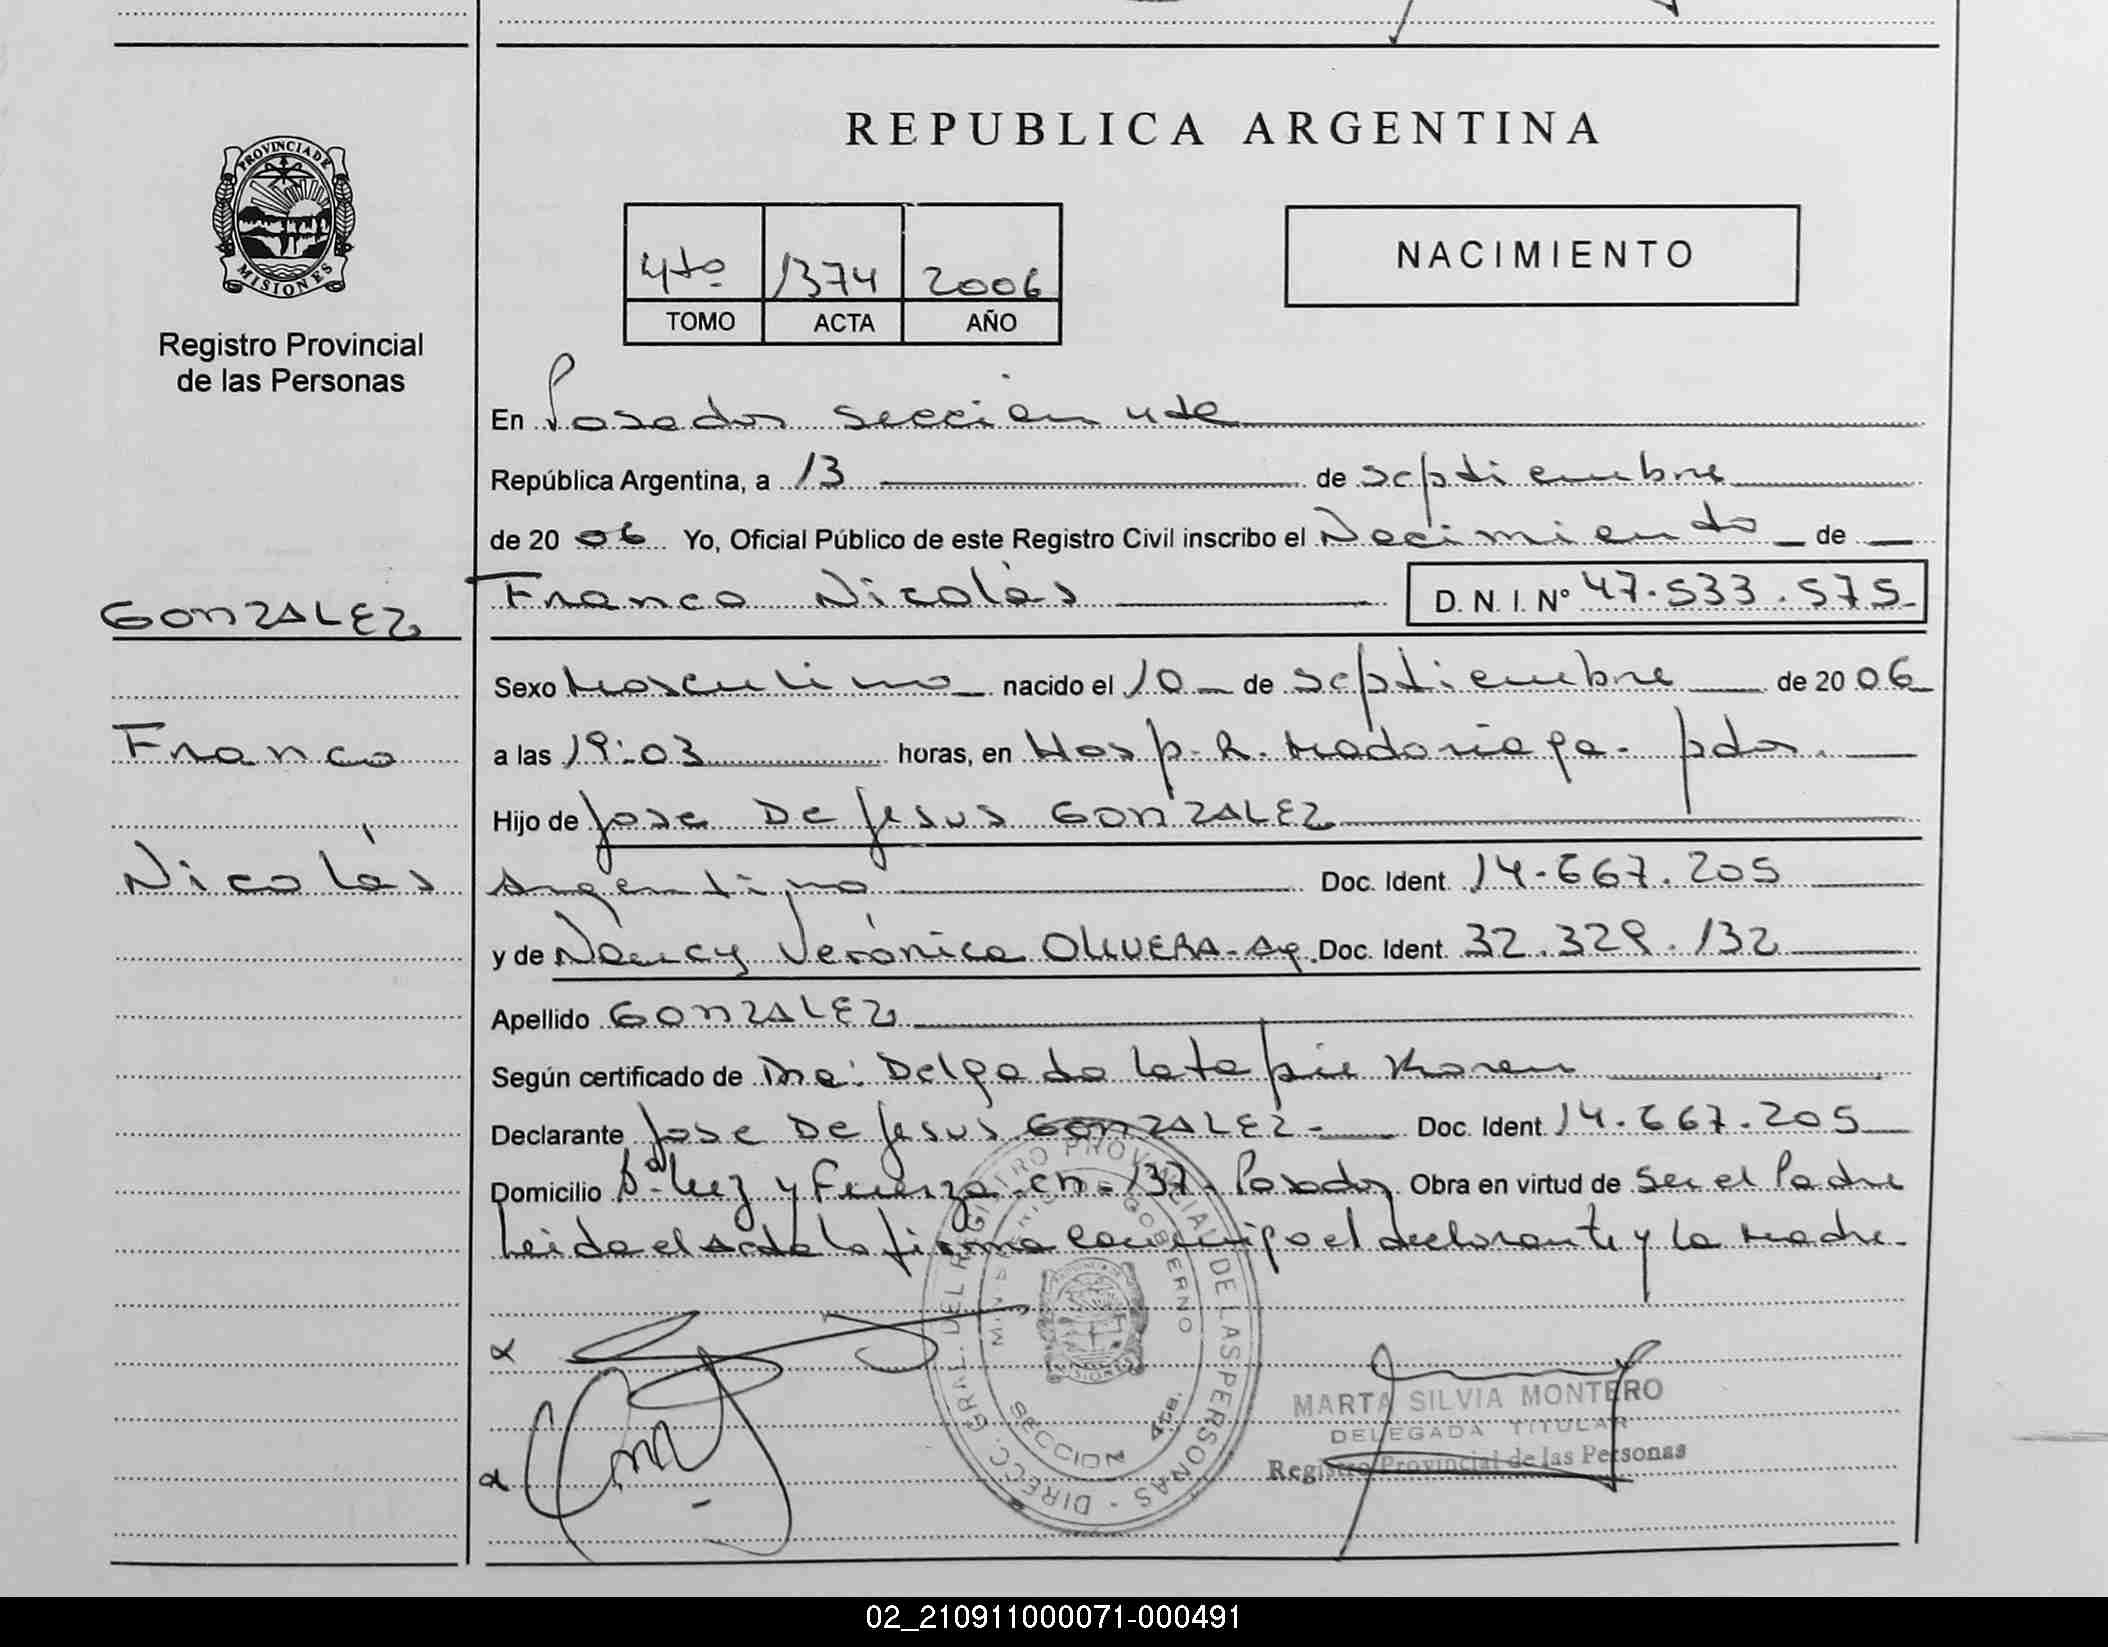 REPUBLICA ARGENTINA
PROVINCIA DE
MISIONES
Registro Provincial
de las Personas
4to 1374 2006
TOMO ACTA AÑO
NACIMIENTO
En Posadas sección 4ta
República Argentina, a 13 de septiembre
de 2006 Yo, Oficial Público de este Registro Civil inscribo el Nacimiento de
GONZALEZ
Franco Nicolás D. N. I. Nº 47.533.575
Sexo Masculino nacido el 10 de septiembre de 2006
Franco
a las 19:03 horas, en Hosp. R. Madariaga - pdas.
Hijo de Jose De Jesus GONZALEZ
Nicolás
Argentino Doc. Ident. 14.667.205
y de Nancy Verónica OLIVERA - Ag. Doc. Ident. 32.329.132
Apellido GONZALEZ
Según certificado de Dra: Delgado Latapie Karen
Declarante Jose De Jesus GONZALEZ - Doc. Ident. 14.667.205
Domicilio Bº Luz y Fuerza - CH - 137 - Posadas Obra en virtud de ser el Padre
Leida el Acta la firma conmigo el declarante y la Madre.
DIRECC. GRAL. DEL REGISTRO PROVINCIAL DE LAS PERSONAS
MINISTERIO GOBIERNO
SECCION 4ta.
MARTA SILVIA MONTERO
DELEGADA TITULAR
Registro Provincial de las Personas
02_210911000071-000491